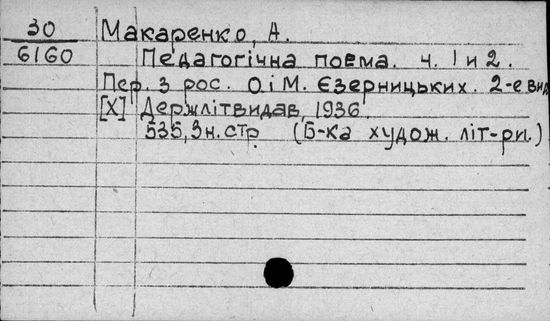 30 Макаренко, А.
6160 Педагогічна поема. ч. 1 и 2.
Пер. з рос. О і М. Єзерницьких. 2-е вид
[Х] Держлітвидав, 1936.
535, 3 н. стр (Б-ка худож. літ-ри.)